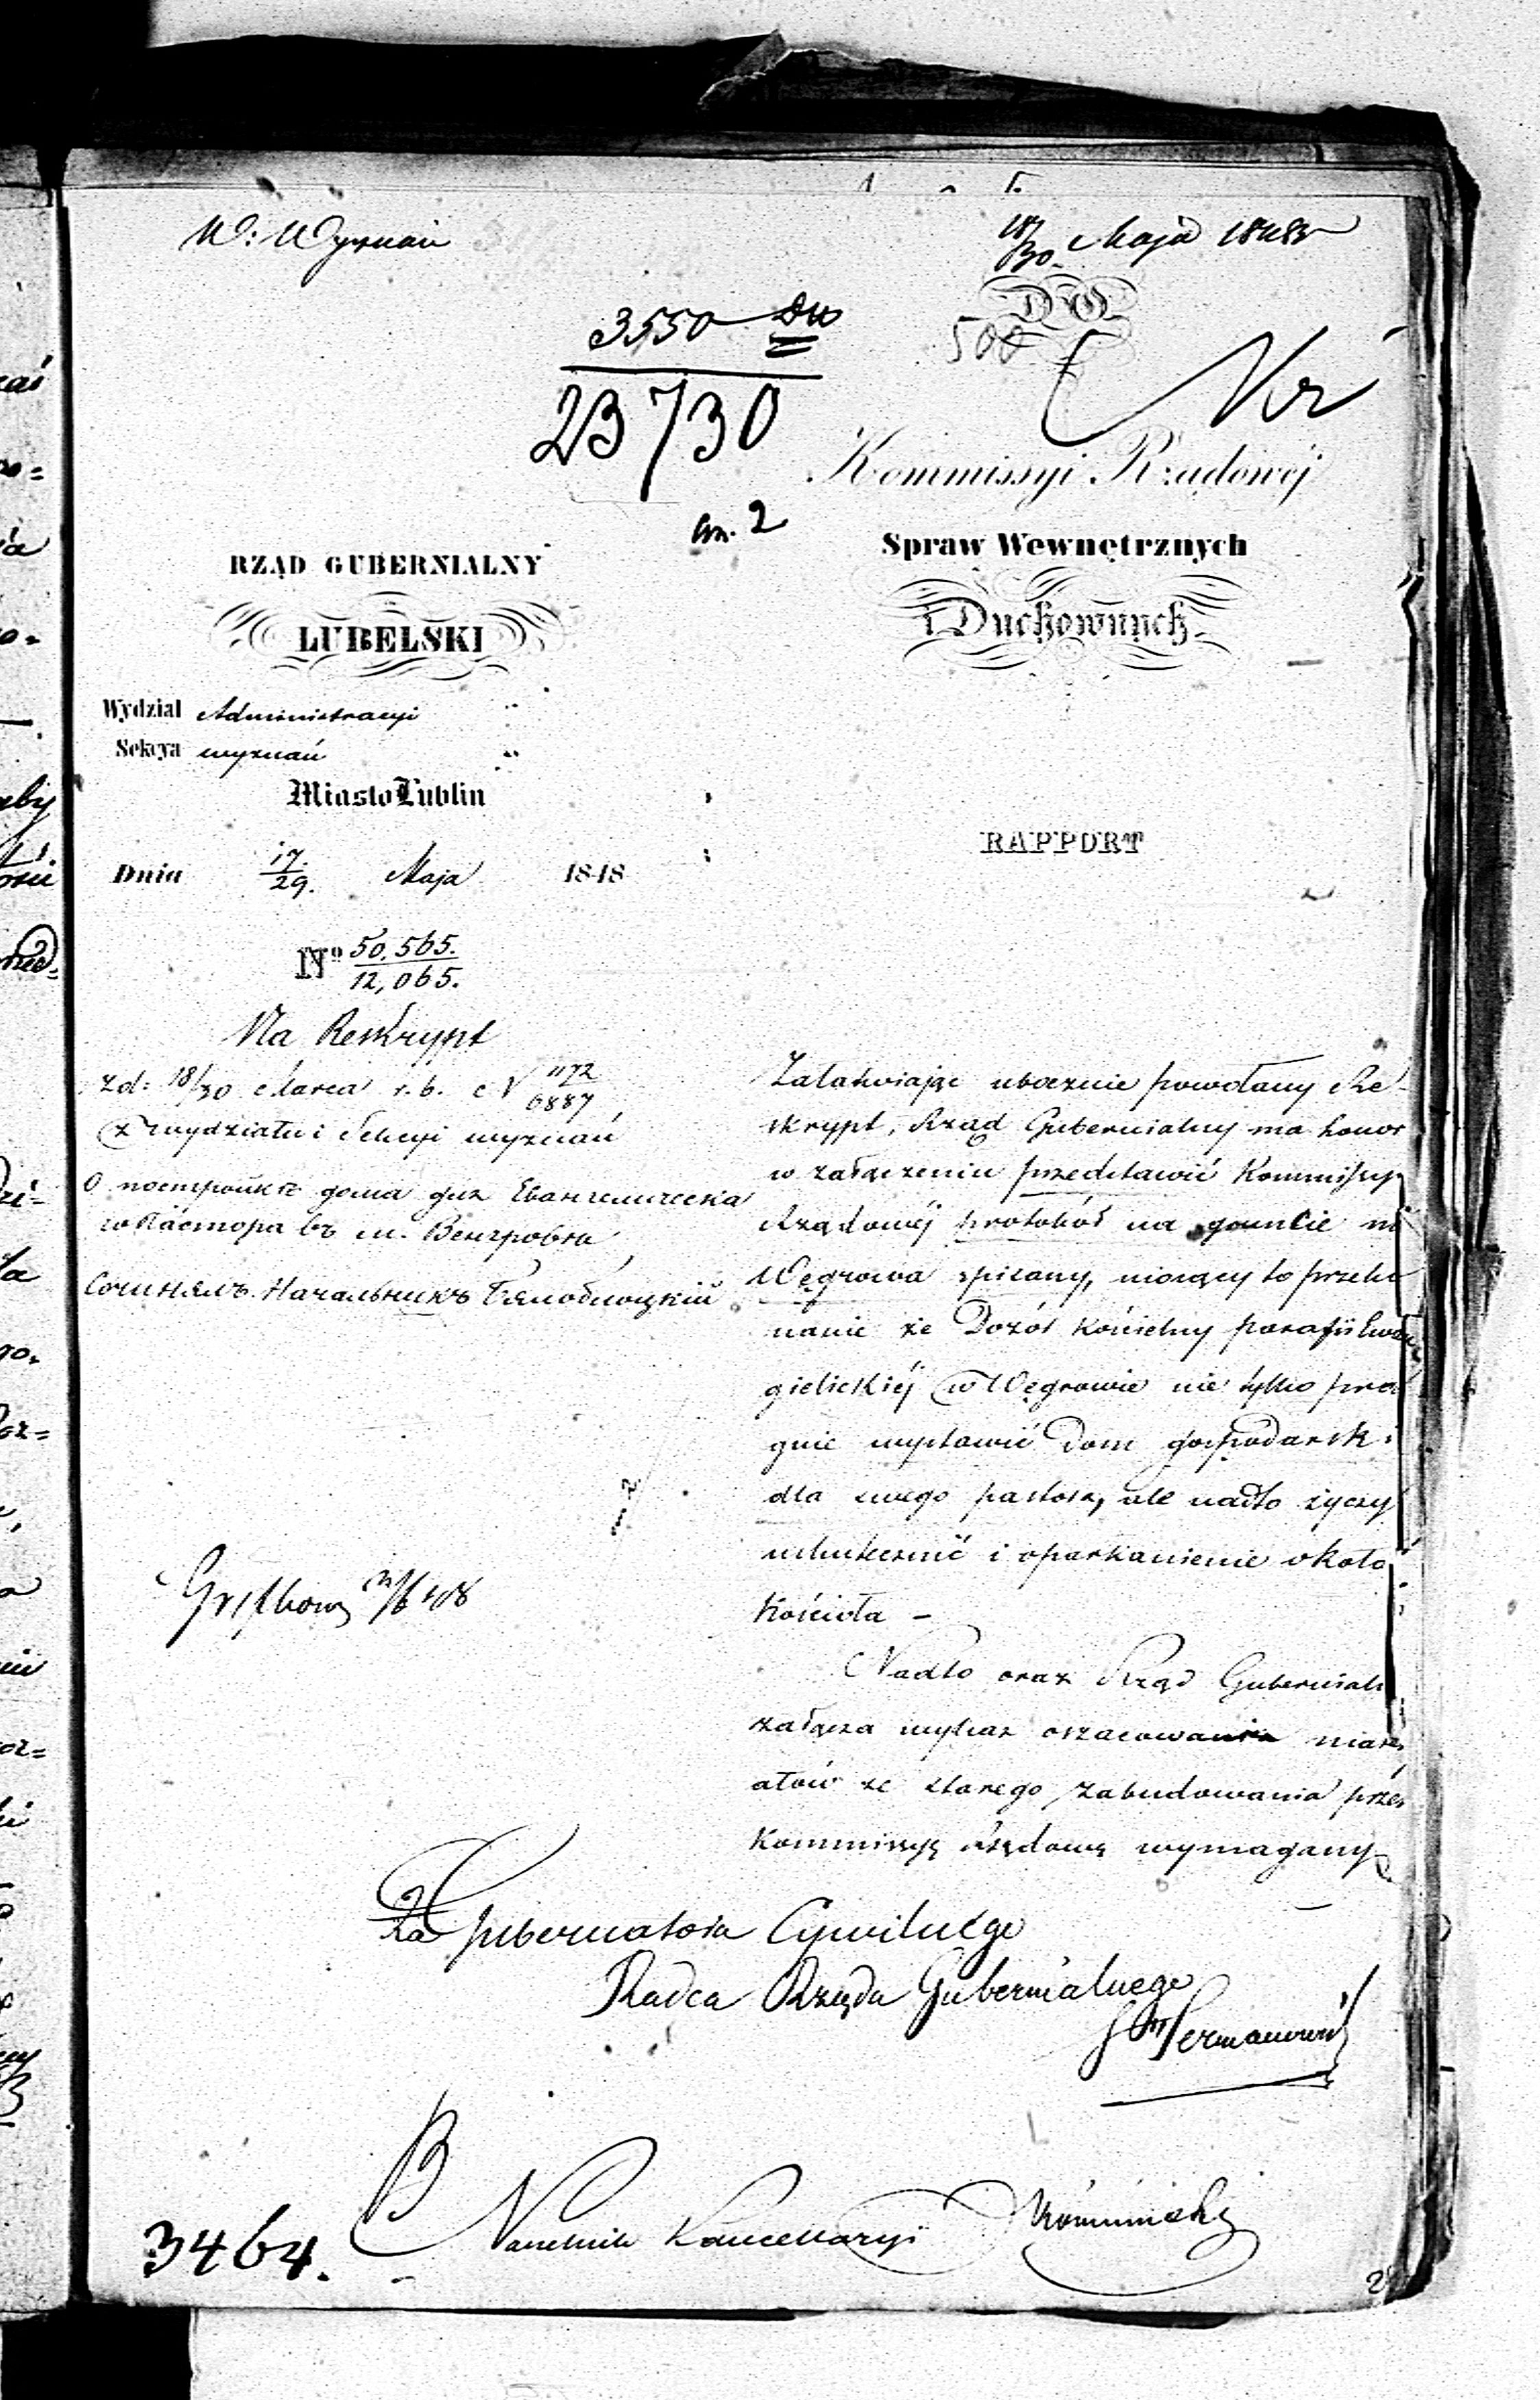 W: Wyznań
18/30 Maja 1848 r
3550
23730
DO
500
Nr
Kommissyi Rządowéj
an. 2
Spraw Wewnętrznych
i Duchownych
RZĄD GUBERNIALNY
LUBELSKI
Wydział Administracyi
Sekcya wyznań
Miasto Lublin
RAPPORT
Dnia 17/29. Maja 1848
No 50.565. / 12,065.
Na Reskrypt
zd: 18/30 Marca r. b. N 1172 / 6887
z wydziału i Sekcyi wyznań
О постройкѣ дома для Евангелическа
го Пастора въ м. Венгровѣ
Сочинялъ Начальникъ
Załatwiając ubocznie powołany Re-
skrypt, Rząd Gubernialny ma honor
w załączeniu przedstawić Kommissyi
Rządowéj protokół na gruncie m
Węgrowa spisany, niosący to przeko
nanie że Dozór Kościelny parafii Ewan
gielickiéj w Węgrowie nie tylko pra
gnie wystawić Dom gospodarski
dla swego pastora, ale nadto życzy
uskutecznić i oparkanienie około
Kościoła –
Nadto oraz Rząd Gubernialn
załącza wykaz oszacowania mater
ałów ze starego zabudowania przez
Kommissyę Rządową wymagany
Za Gubernatora Cywilnego
Radca Rządu Gubernialnego
Naczelnik Kancellaryi
3464.